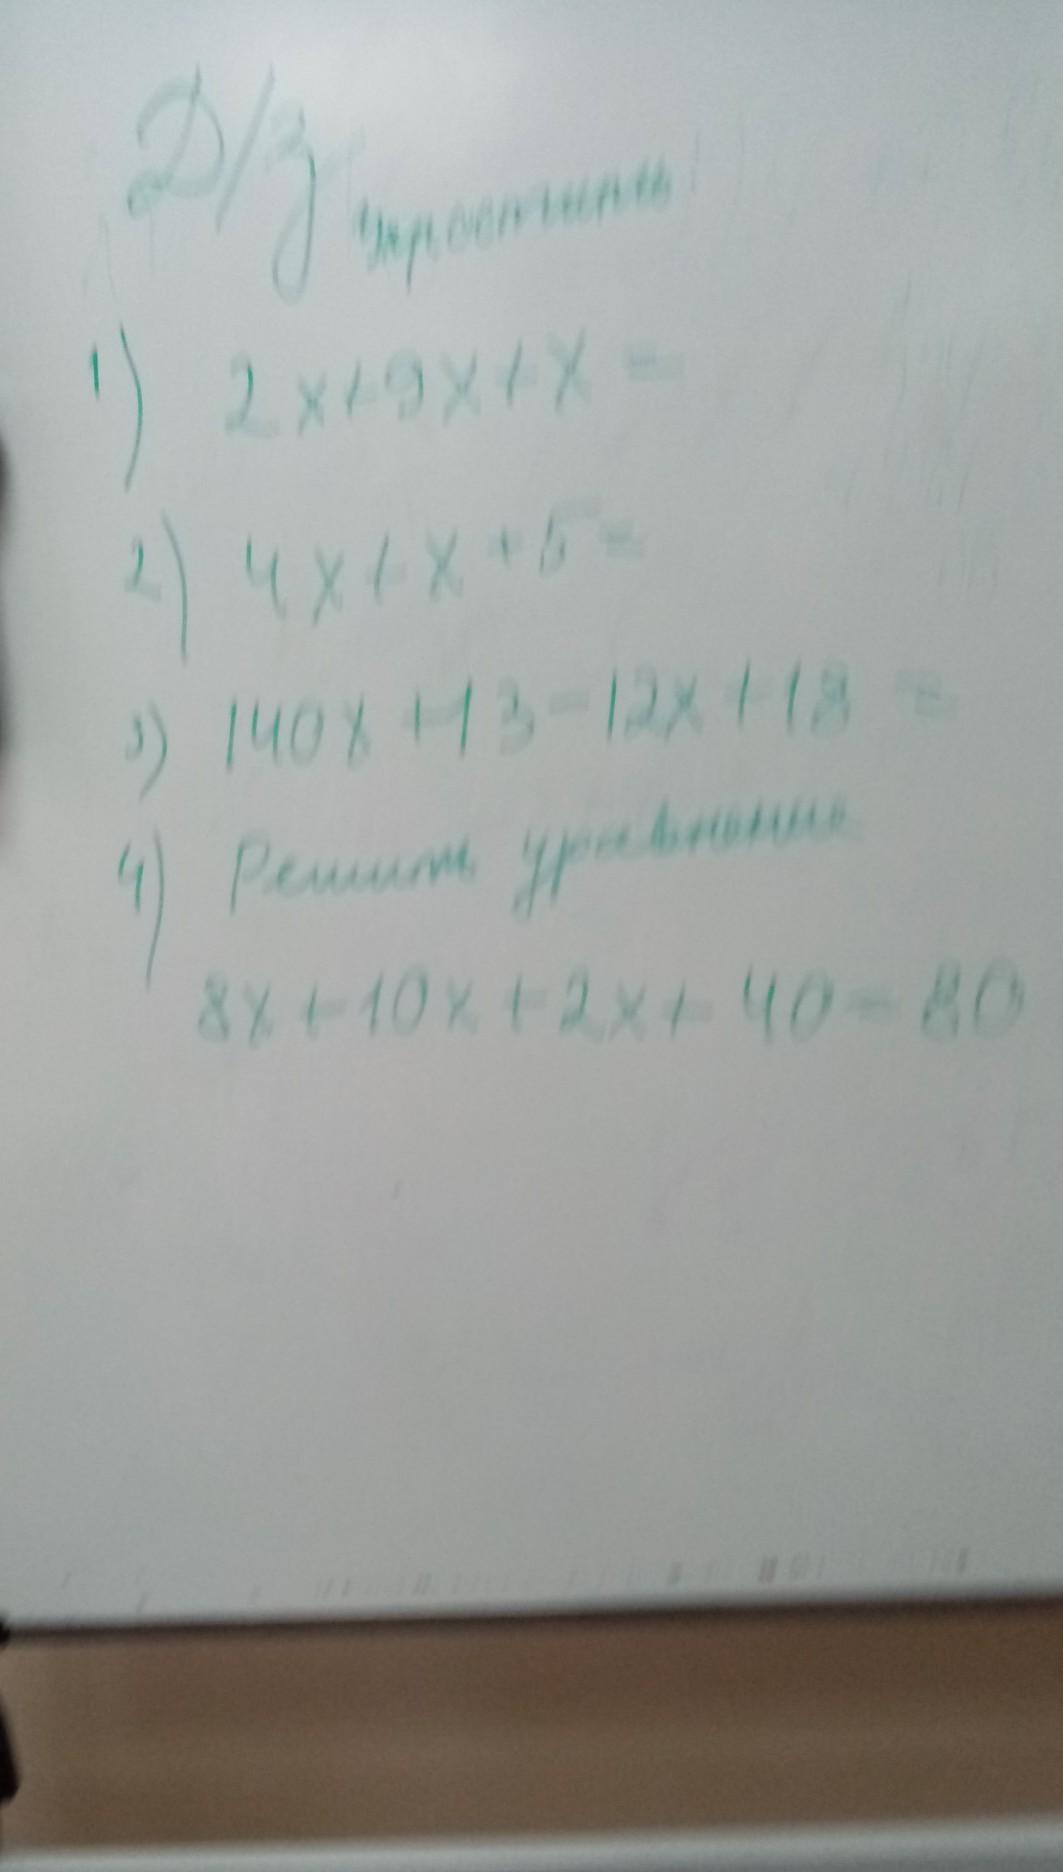 Д/з упростить
1) 2x+9x+x=
2) 4x+x+5=
3) 140x+13-12x+18=
4) Решить уравнение
8x+10x+2x+40=80